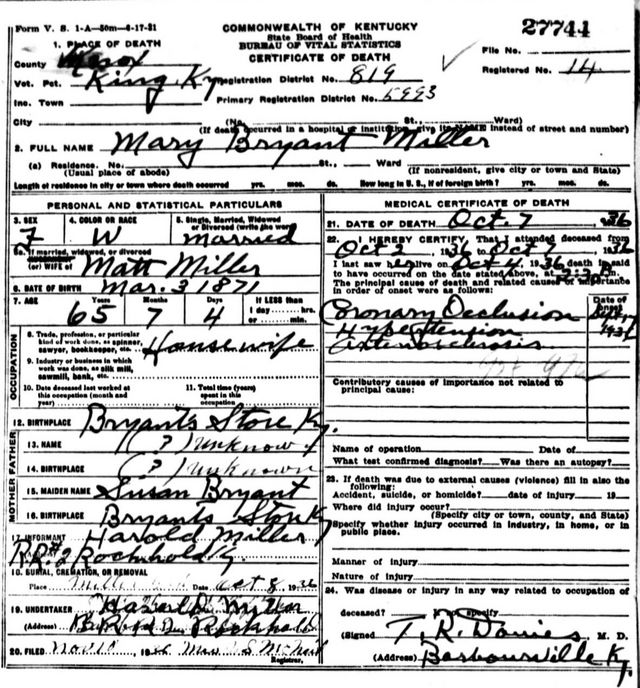 Form V. S. 1-A—50m—6-17-31
COMMONWEALTH OF KENTUCKY
State Board of Health
BUREAU OF VITAL STATISTICS
CERTIFICATE OF DEATH
27744
File No.
Registered No. 14
1. PLACE OF DEATH
County Knox
Vot. Pct. King, Ky Registration District No. 819
Inc. Town Primary Registration District No. 5993
City (No. St., Ward)
(If death occurred in a hospital or institution, give its NAME instead of street and number)
2. FULL NAME Mary Bryant Miller
(a) Residence. No. St., Ward
(Usual place of abode) (If nonresident, give city or town and State)
Length of residence in city or town where death occurred yrs. mos. ds. How long in U. S., if of foreign birth? yrs. mos. ds.
PERSONAL AND STATISTICAL PARTICULARS
3. SEX 4. COLOR OR RACE 5. Single, Married, Widowed or Divorced (write the word)
F W Married
5a. If married, widowed, or divorced
(or) WIFE of Matt Miller
6. DATE OF BIRTH Mar. 3 1871
7. AGE Years Months Days If LESS than
1 day hrs.
65 7 4 or min.
OCCUPATION
8. Trade, profession, or particular kind of work done, as spinner, sawyer, bookkeeper, etc. Housewife
9. Industry or business in which work was done, as silk mill, sawmill, bank, etc.
10. Date deceased last worked at this occupation (month and year)
11. Total time (years) spent in this occupation
12. BIRTHPLACE Bryants Store Ky.
FATHER
13. NAME (?) Unknown
14. BIRTHPLACE (?) Unknown
MOTHER
15. MAIDEN NAME Susan Bryant
16. BIRTHPLACE Bryants Store Ky
17. INFORMANT Harold Miller
R.R. #2 Rockhold Ky.
18. BURIAL, CREMATION, OR REMOVAL
Place Date Oct 8 1936
19. UNDERTAKER
(Address) Rockhold
20. FILED Nov 19
Registrar.
MEDICAL CERTIFICATE OF DEATH
21. DATE OF DEATH Oct. 7 1936
22. I HEREBY CERTIFY, That I attended deceased from
Oct 3 1936 to Oct 7 1936
I last saw her alive on Oct 4, 1936 death is said
to have occurred on the date stated above, at
The principal cause of death and related causes of importance
in order of onset were as follows:
Date of Onset
Coronary Occlusion
Hypertension
Arteriosclerosis
Contributory causes of importance not related to
principal cause:
Name of operation Date of
What test confirmed diagnosis? Was there an autopsy?
23. If death was due to external causes (violence) fill in also the
following:
Accident, suicide, or homicide? date of injury 19
Where did injury occur?
(Specify city or town, county, and State)
Specify whether injury occurred in industry, in home, or in
public place.
Manner of injury
Nature of injury
24. Was disease or injury in any way related to occupation of
deceased? If so specify
(Signed) T. R. Davies, M. D.
(Address) Barbourville Ky.